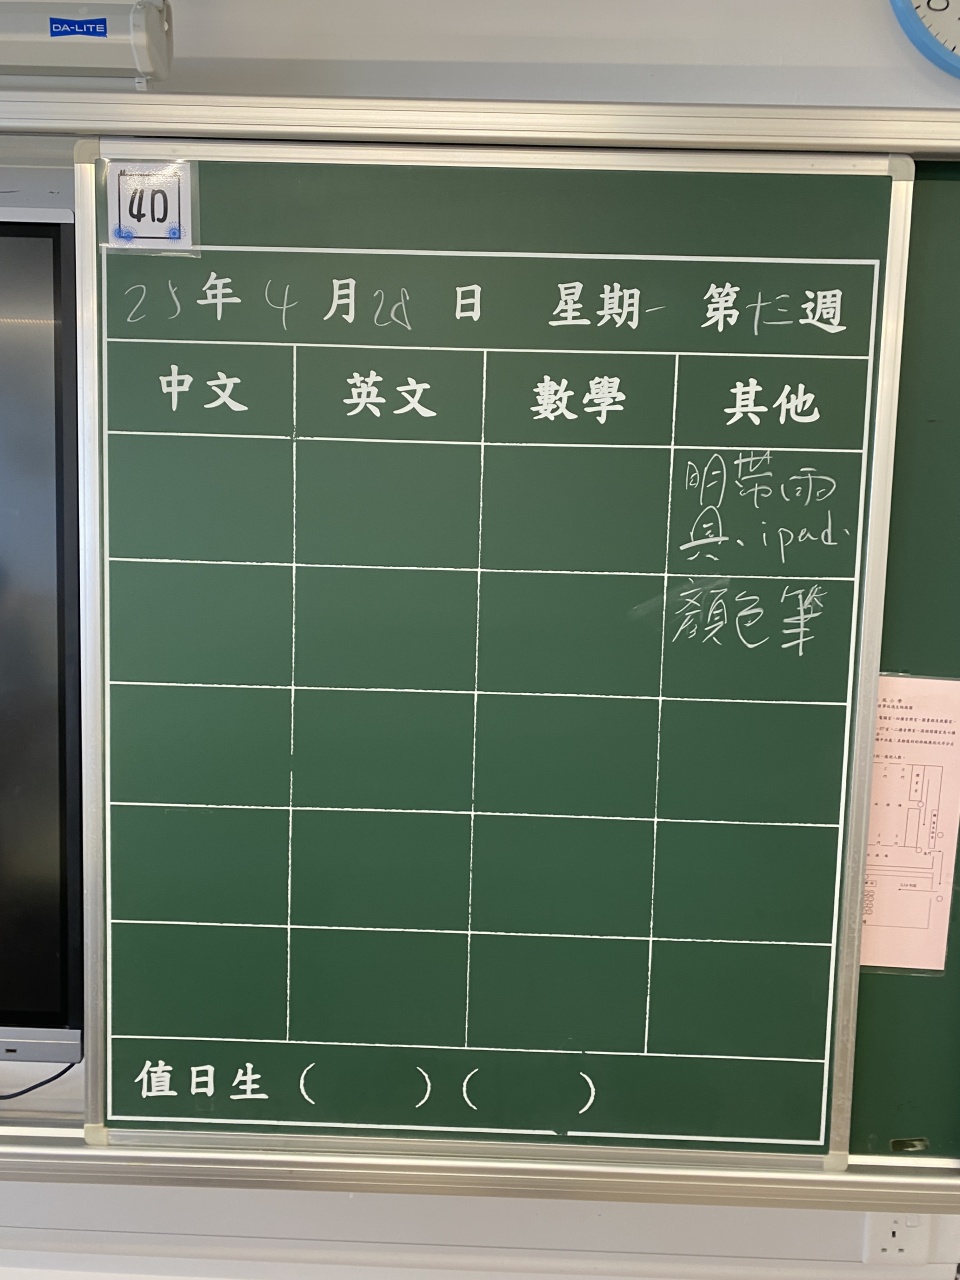 DA-LITE
4D
25年4月28日 星期一 第十三週
中文 英文 數學 其他
明帶雨
具、ipad.
顏色筆
值日生( )( )